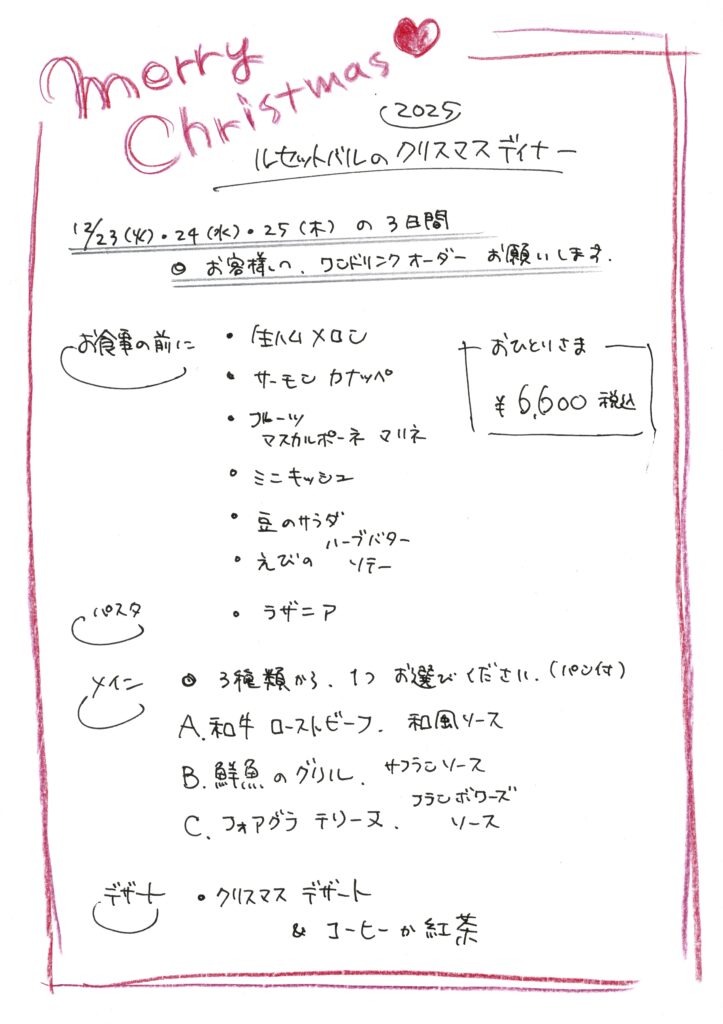 Merry
Christmas
2025
ルセットバルのクリスマスディナー
12/23(火)・24(水)・25(木)の3日間
◎ お客様1の、ワンドリンクオーダーお願いします。
お食事の前に
・生ハムメロン
・サーモン カナッペ
・フルーツ
マスカルポーネ マリネ
・ミニキッシュ
・豆のサラダ
・えびの ハーブバター
ソテー
おひとりさま
¥6,600 税込
パスタ
・ラザニア
メイン
◎ 3種類から、1つ お選びください。(パン付)
A.和牛 ローストビーフ. 和風ソース
B.鮮魚のグリル. サフランソース
C.フォアグラ テリーヌ. フランボワーズ
ソース
デザート
・クリスマス デザート
& コーヒーか紅茶